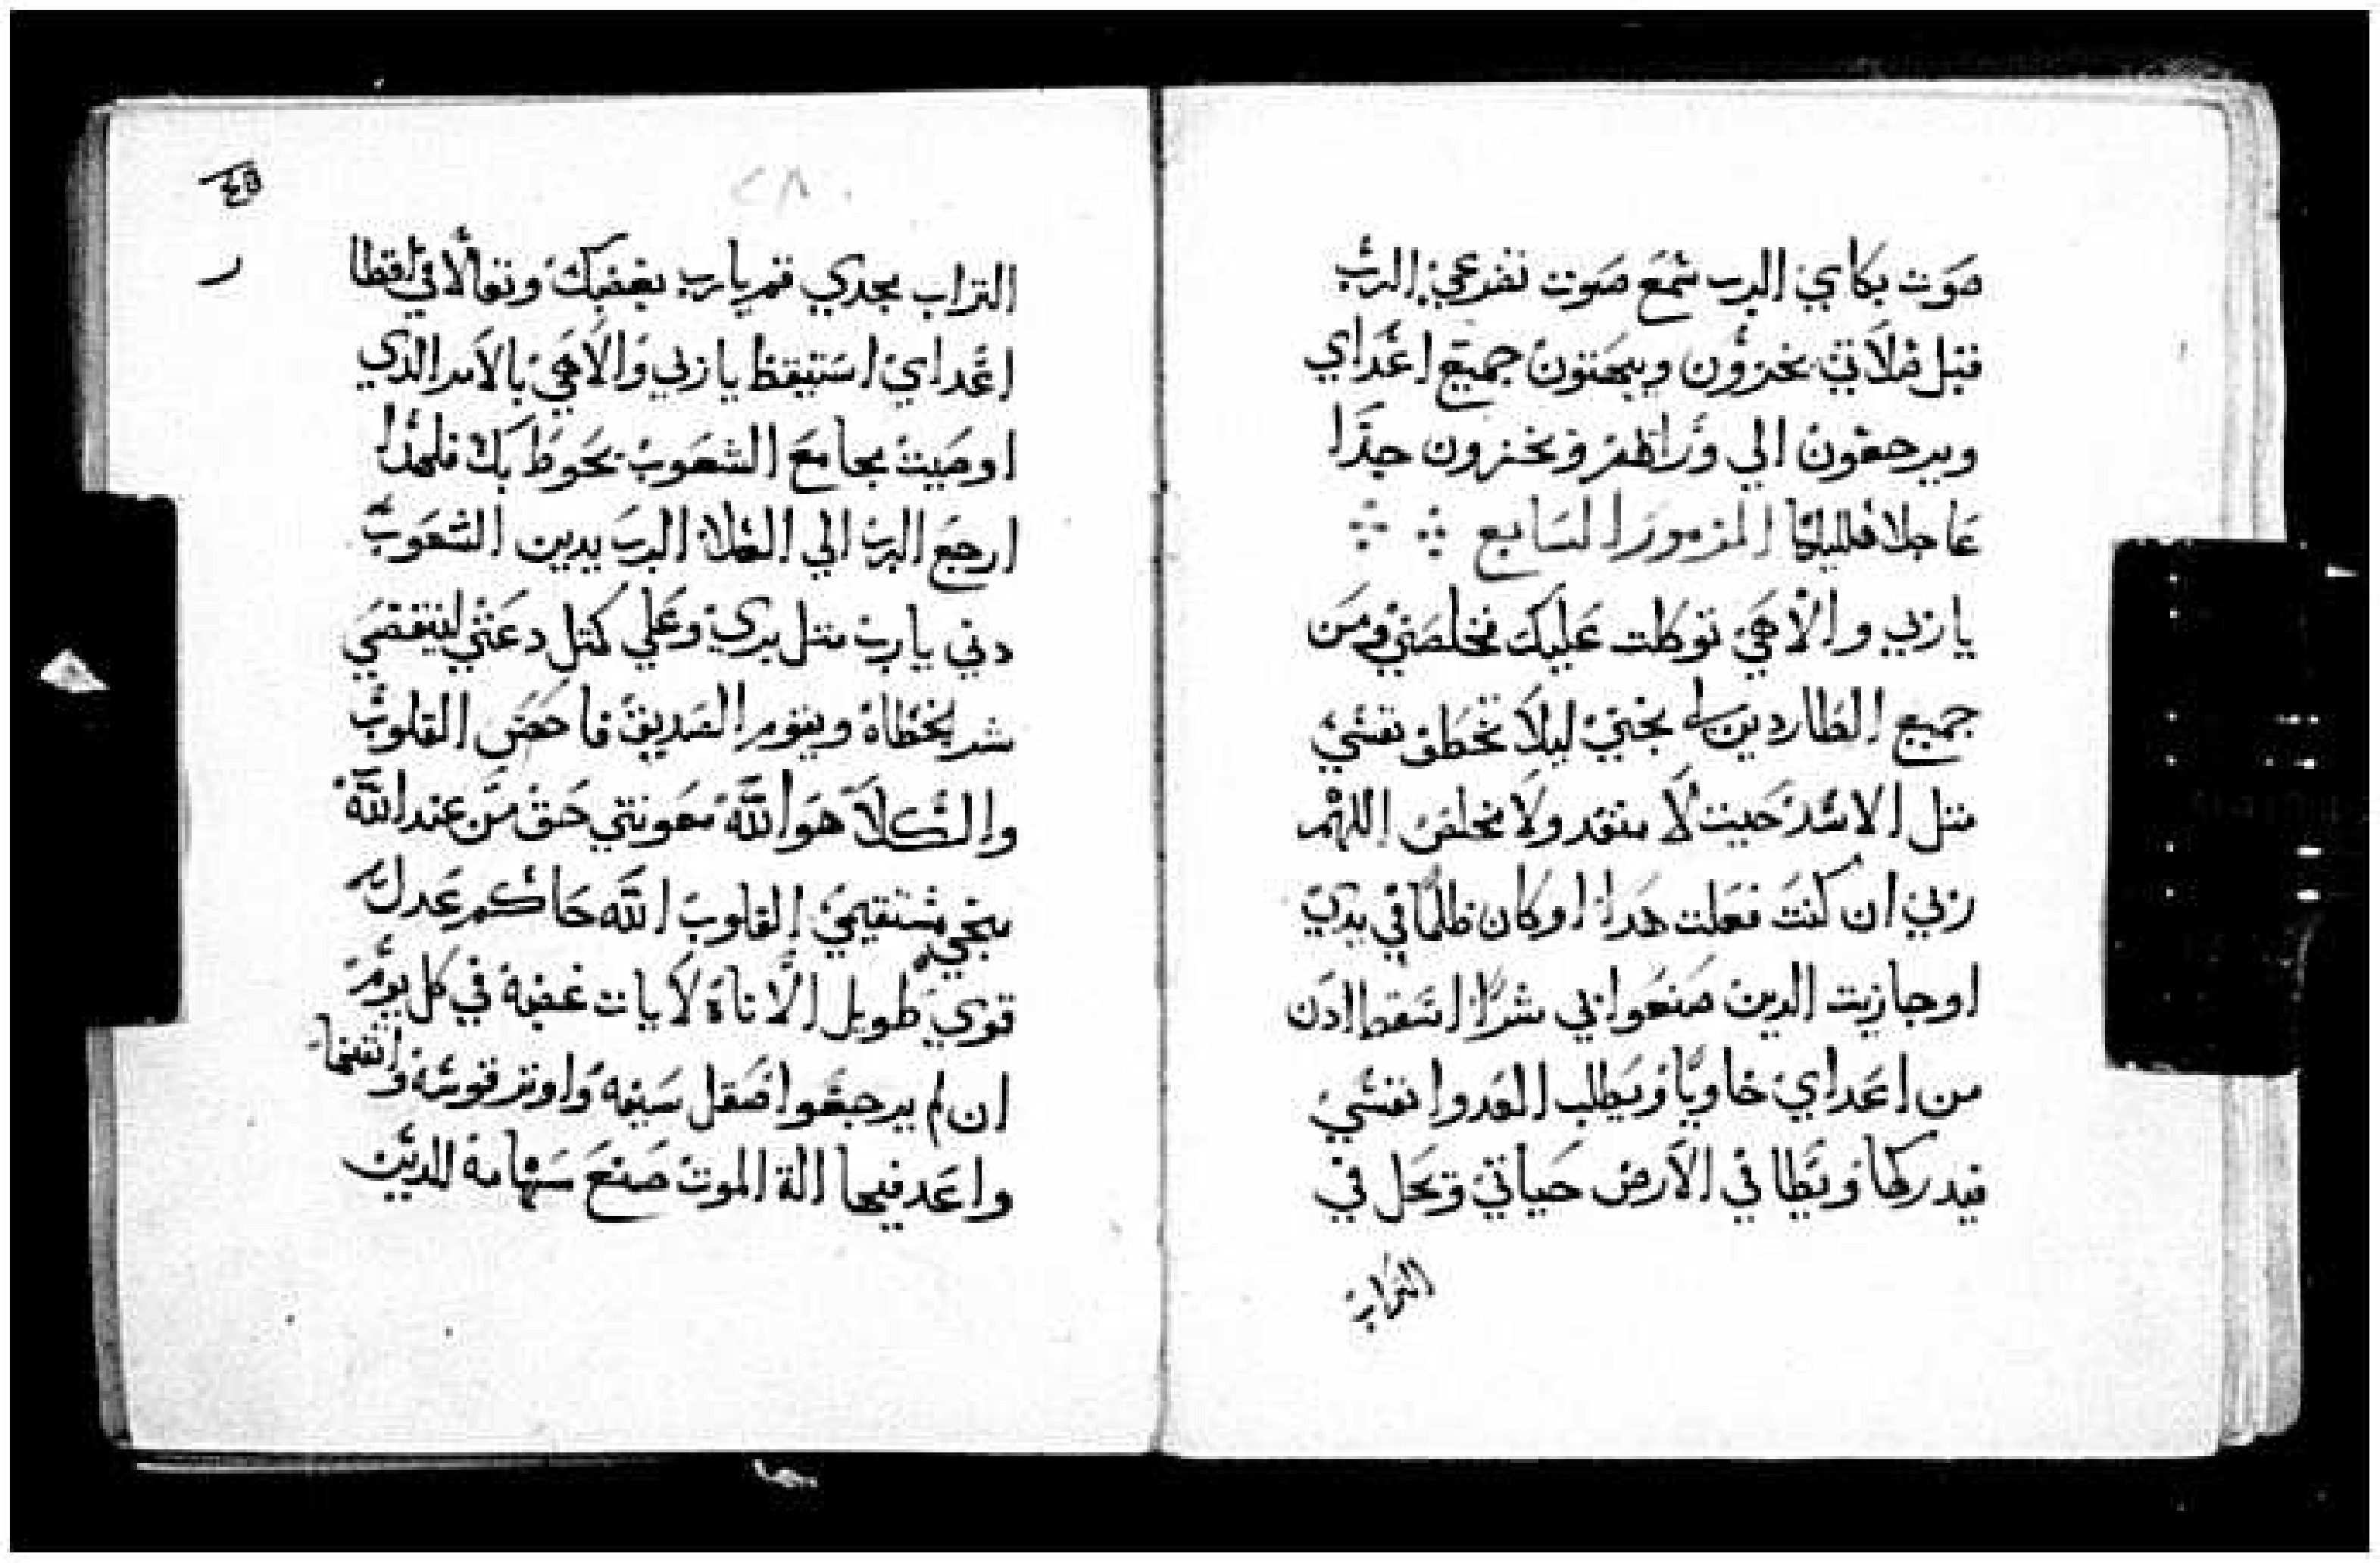 صوت بكاي الرب سمع صوت تضرعي الرب
قبل صلاتي يخزون ويبهتون جميع اعداي
ويرجعون الي وراهم ويخزون جدا
عاجلا هلليلويا المزمور السابع
يا ربي والاهي توكلت عليك فخلصني ومن
جميع الطاردين لي نجني ليلا تخطف نفسي
متل الاسد حيت لا منقد ولا مخلص اللهم
ربي ان كنت فعلت هدا او كان ظلما في يدي
او جازيت الدين صنعوا بي شرا اسقط ادن
من اعداي خاويا ويطلب العدوا نفسي
فيدركها ويطا في الارض حياتي ويحل في
التراب
٢٨
التراب مجدي قم يارب بغضبك وتعالا في اقطا
اعداي استيقظ يا ربي والاهي بالامر الدي
اوصيت مجامع الشعوب يحوط بك فلهدا
ارجع الرب الي العلا الرب يدين الشعوب
دني يارب متل بري وعلي كتل دعتي لينقضي
شر الخطاه ويقوم الصديق فاحص القلوب
والكلا هو الله معونتي حق من عند الله
منجي مستقيمي القلوب الله حاكم عدل
قوي طويل الاناة لا يات غضبه في كل يوم
ان لم يرجعوا صقل سيفه واوتر قوسه واتقنها
واعد فيها الة الموت صنع سهامه للدين